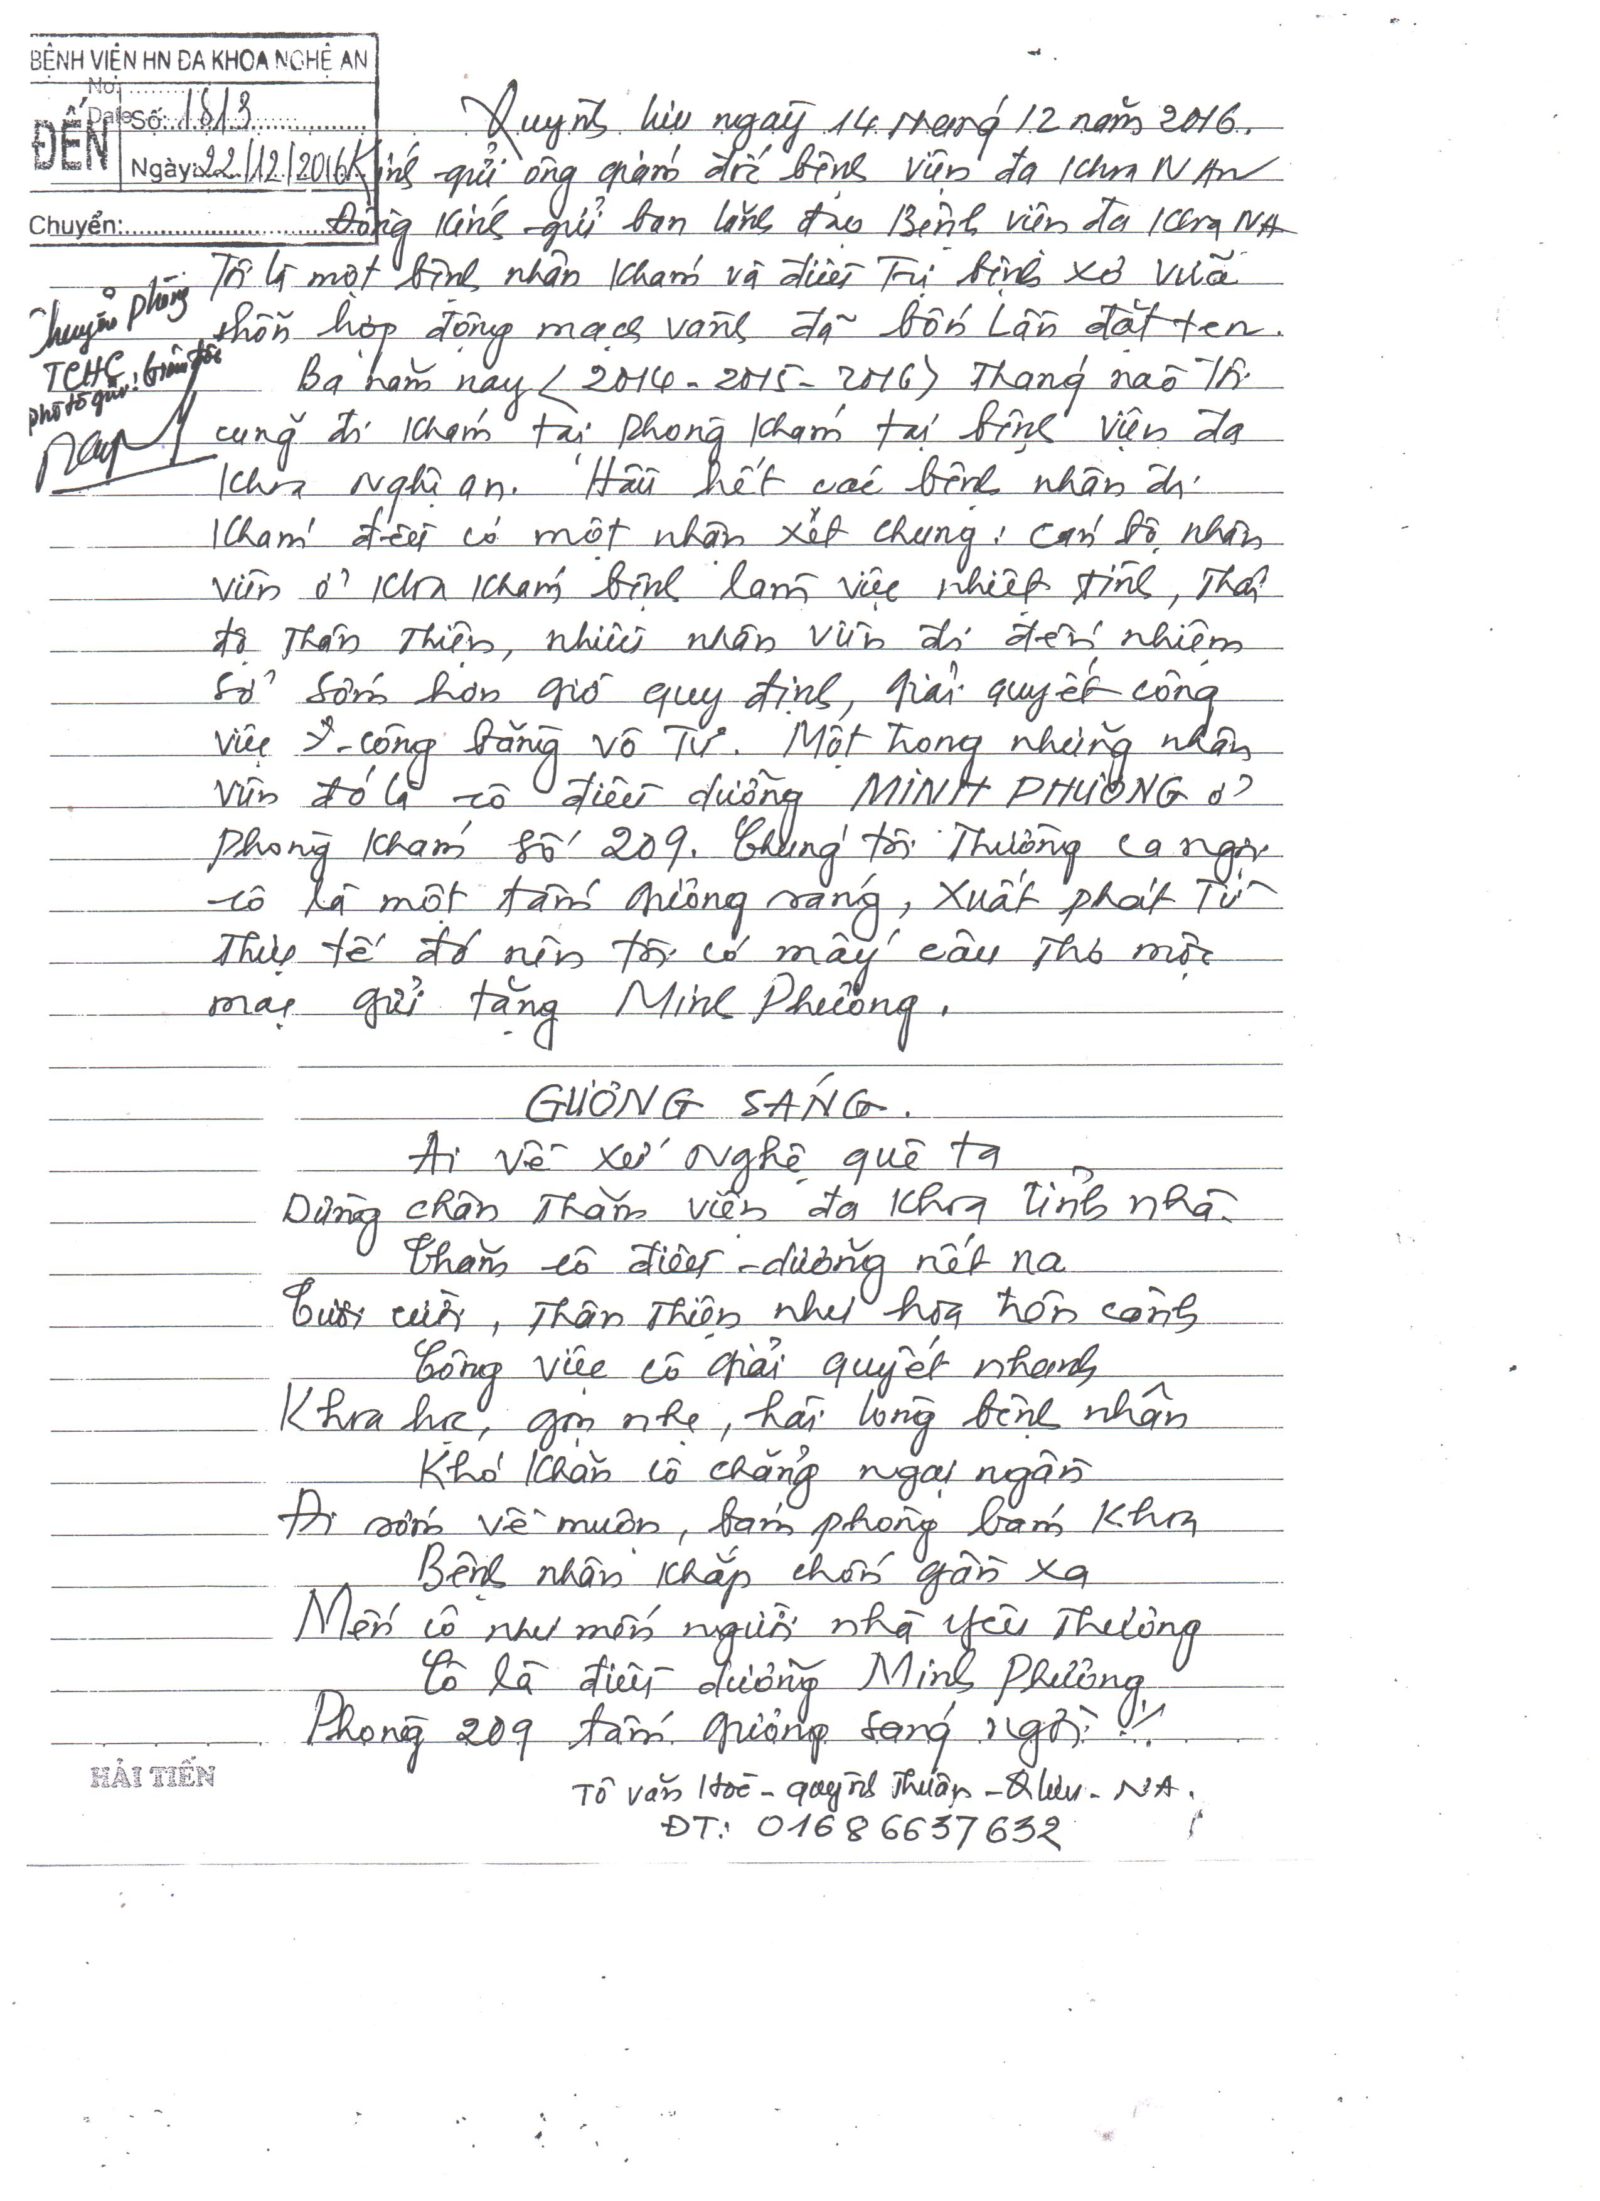 BỆNH VIỆN HN ĐA KHOA NGHỆ AN
No:
Date
ĐẾN
Số: 1813
Ngày: 22/12/2016
Chuyển:
Chuyển phòng
TCHC
phô tô gửi: Giám đốc
Quỳnh lưu ngày 14 tháng 12 năm 2016.
Kính gửi ông giám đốc bệnh viện đa khoa N An
Đồng kính gửi ban lãnh đạo Bệnh viện đa khoa NA
Tôi là một bệnh nhân khám và điều trị bệnh xơ vữa
hỗn hợp động mạch vành đã bốn lần đặt ten.
Ba năm nay (2014-2015-2016) Tháng nào Tôi
cũng đi khám tại phòng khám tại bệnh viện đa
khoa nghệ an. Hầu hết các bệnh nhân đi
khám đều có một nhận xét chung: cán bộ nhân
viên ở khoa khám bệnh làm việc nhiệt tình, Thái
độ Thân Thiện, nhiều nhân viên đi đến nhiệm
sở sớm hơn giờ quy định, giải quyết công
việc công bằng vô Tư. Một trong những nhân
viên đó là cô điều dưỡng MINH PHƯƠNG ở
phòng khám số 209. Chúng tôi Thường ca ngợi
cô là một tấm gương sáng, xuất phát Từ
Thực tế đó nên tôi có mấy câu Thơ mộc
mạc gửi tặng Minh Phương.
GƯƠNG SÁNG.
Ai về xứ nghệ quê ta
Dừng chân Thăm viện đa khoa tỉnh nhà.
Thăm cô điều dưỡng nết na
Tươi cười, Thân Thiện như hoa trên cành
Công việc cô giải quyết nhanh
Khoa học, gọn nhẹ, hài lòng bệnh nhân
Khó khăn cô chẳng ngại ngần
Đi sớm về muộn, bám phòng bám khoa
Bệnh nhân khắp chốn gần xa
Mến cô như mến người nhà yêu Thương
Cô là điều dưỡng Minh Phương
Phòng 209 tấm gương sáng ngời!
HẢI TIẾN
Tô Văn Hoè - quỳnh Thuận - Q lưu - NA.
ĐT: 01686637632